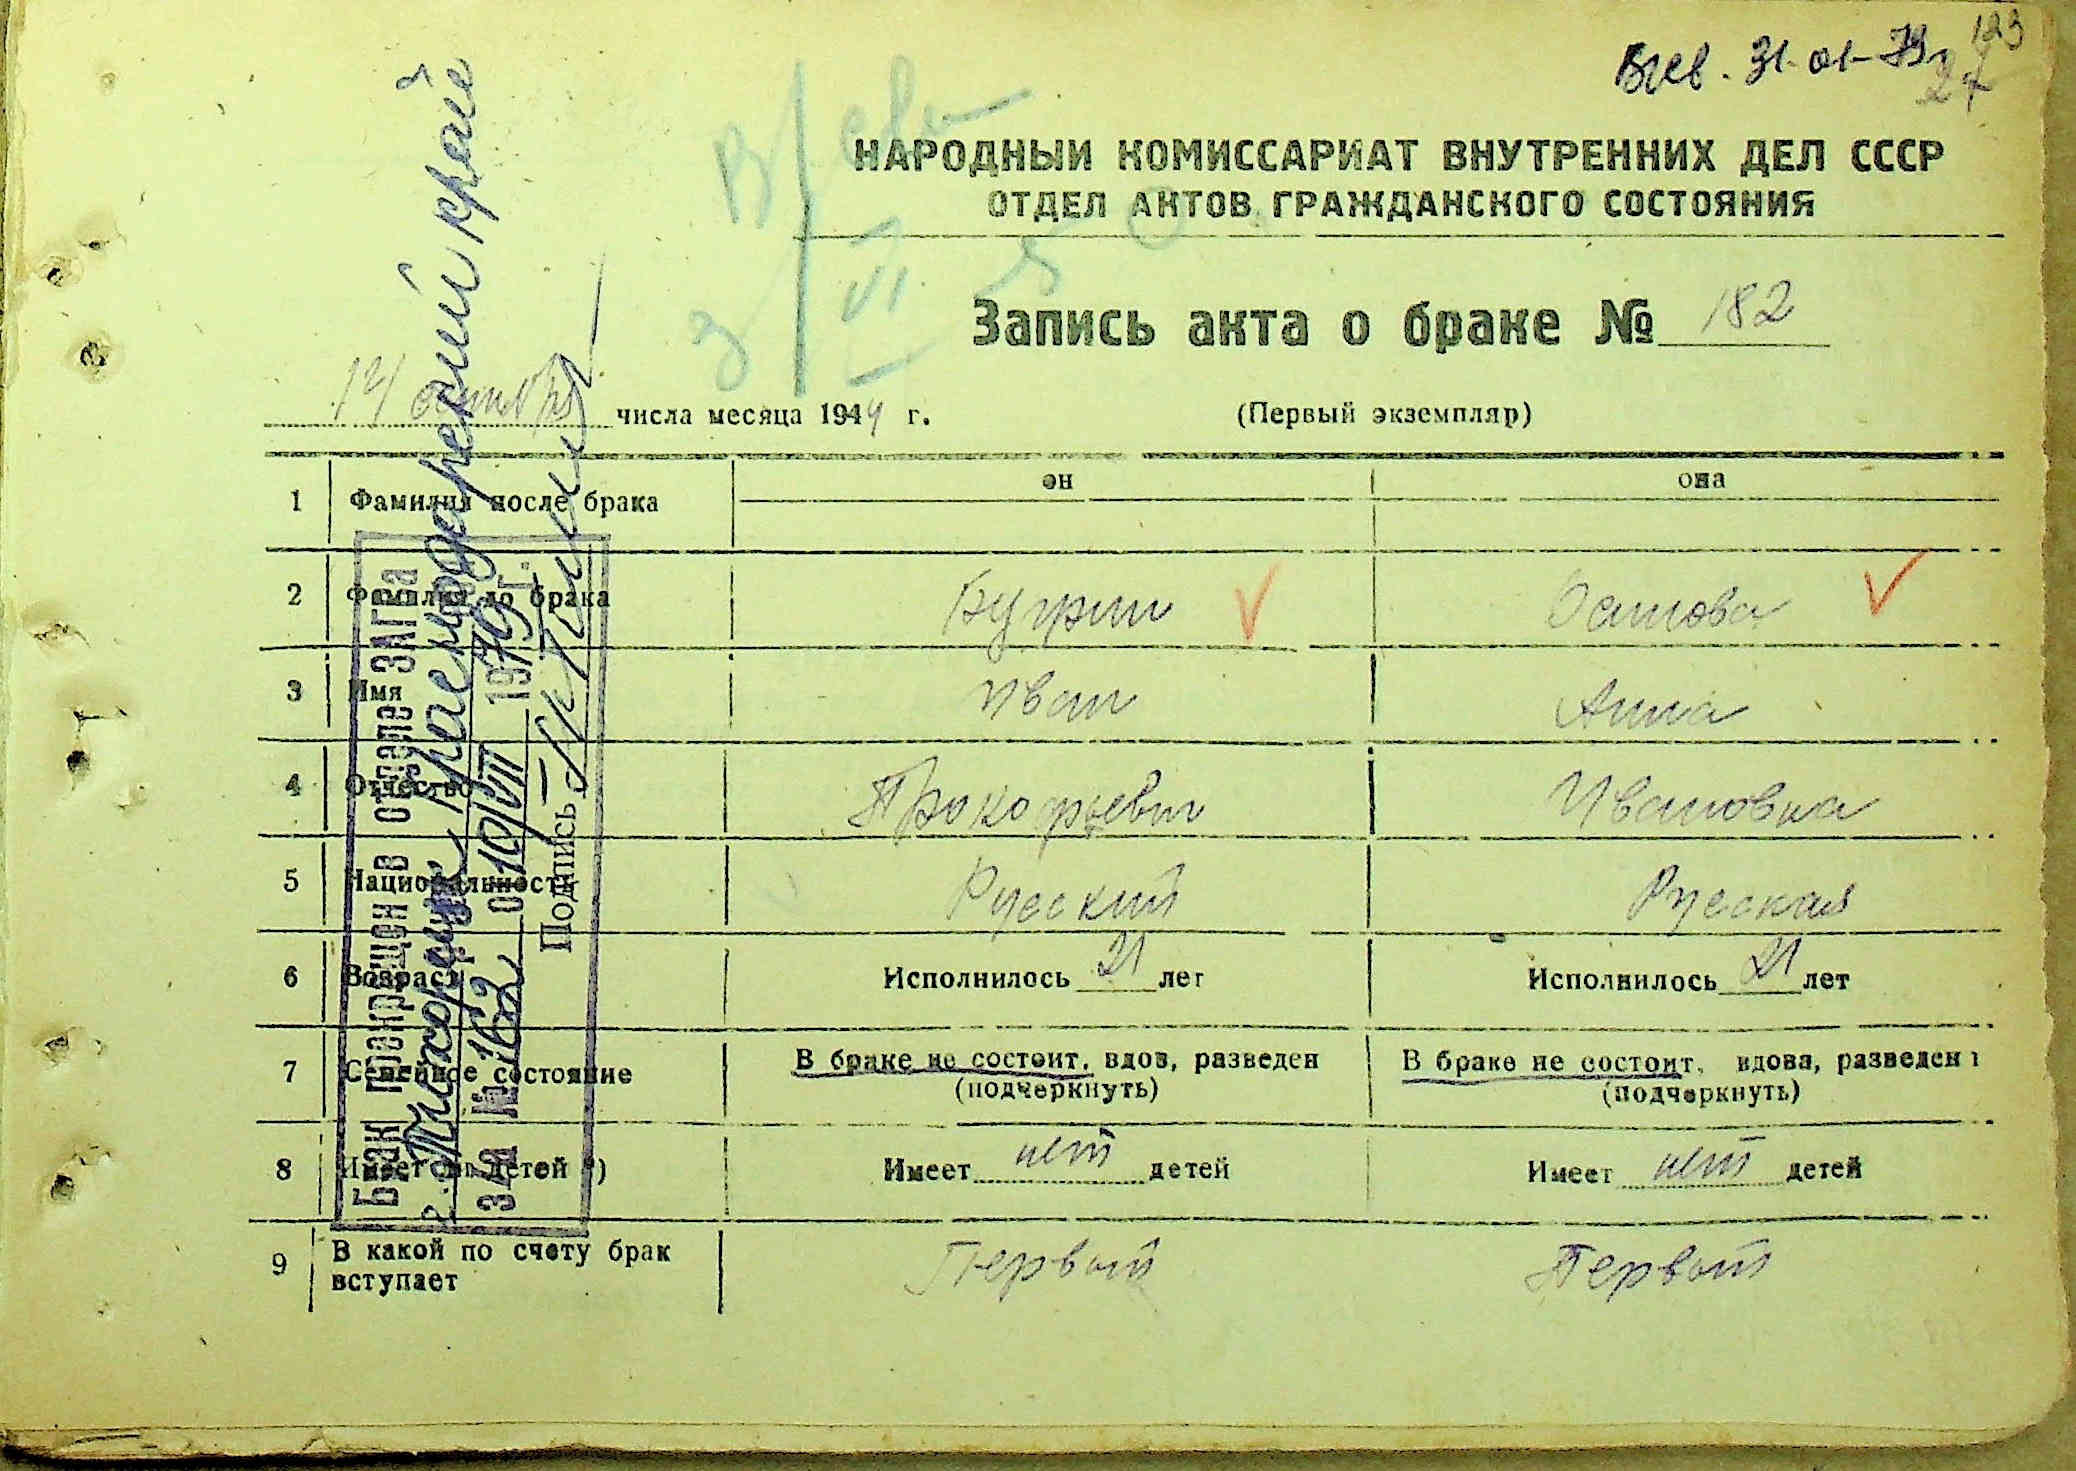 Вкев. 31-01-79
123
27
НАРОДНЫЙ КОМИССАРИАТ ВНУТРЕННИХ ДЕЛ СССР
ОТДЕЛ АКТОВ ГРАЖДАНСКОГО СОСТОЯНИЯ
Запись акта о браке № 182
сентября числа месяца 1944 г. (Первый экземпляр)
он она
1 Фамилия после брака
2 Фамилия до брака Бугрин
3 Имя Иван Анна
4 Отчество Прокофьевич Ивановна
5 Национальность Русский Русская
6 Возраст Исполнилось 21 лет Исполнилось 21 лет
7 Семейное состояние В браке не состоит, вдов, разведен (подчеркнуть) В браке не состоит, вдова, разведена (подчеркнуть)
8 Имеет ли детей *) Имеет нет детей Имеет нет детей
9 В какой по счету брак вступает Первый Первый
Брак прекращен в отделе ЗАГСа
г. Тихорецк Краснодарский край
за № 162 о 10/VII 1979 г.
Подпись